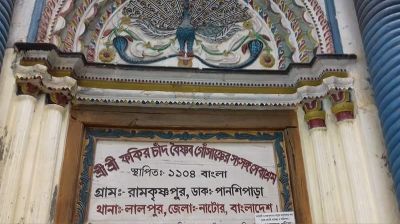 শ্রী শ্রী ফকির চাঁদ বৈষ্ণব গোঁসাইয়ের সৎসঙ্গ সেবাশ্রম
স্থাপিত: ১১০৪ বাংলা
গ্রাম: রামকৃষ্ণপুর, ডাক: পানশিপাড়া
থানা: লালপুর, জেলা: নাটোর, বাংলাদেশ।